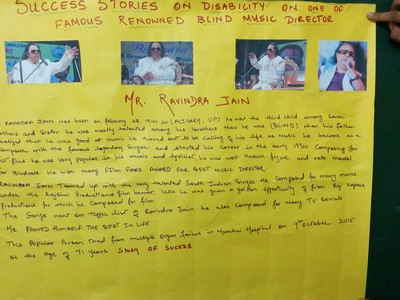 SUCCESS STORIES ON DISABILITY ON ONE OF
FAMOUS RENOWNED BLIND MUSIC DIRECTOR
MR. RAVINDRA JAIN
RAVINDRA JAIN HAS BEEN ON FEBRUARY 28 1944 IN (ALIGARH, UP) he was the third child among seven
brothers and sister he was mostly talented among his brothers then he was (BLIND) when his father
realized that he was good at music he turned out to be calling of his life as music he become as a
composer with the famous legendary singer and started his career in the early 1970s composing for
hit films he was very popular in his music and lyricist he was well known figure and role model
for Blindness He won many FILM FARE AWARD FOR BEST MUSIC DIRECTOR
RAVINDRA JAIN teamed up with the very talented South Indian Singer He composed for many movies
under the Rajshri Productions film banner later he was given a golden opportunity of film Raj Kapoor
Productions for which he composed for film
The Songs went on topper chart of Ravindra Jain he also composed for many TV Serials
HE PROVED HIMSELF THE BEST IN LIFE
This Popular Person died from multiple organ failure in Mumbai Hospital on 9th OCTOBER 2015
At the Age of 71 years STORY OF SUCESS